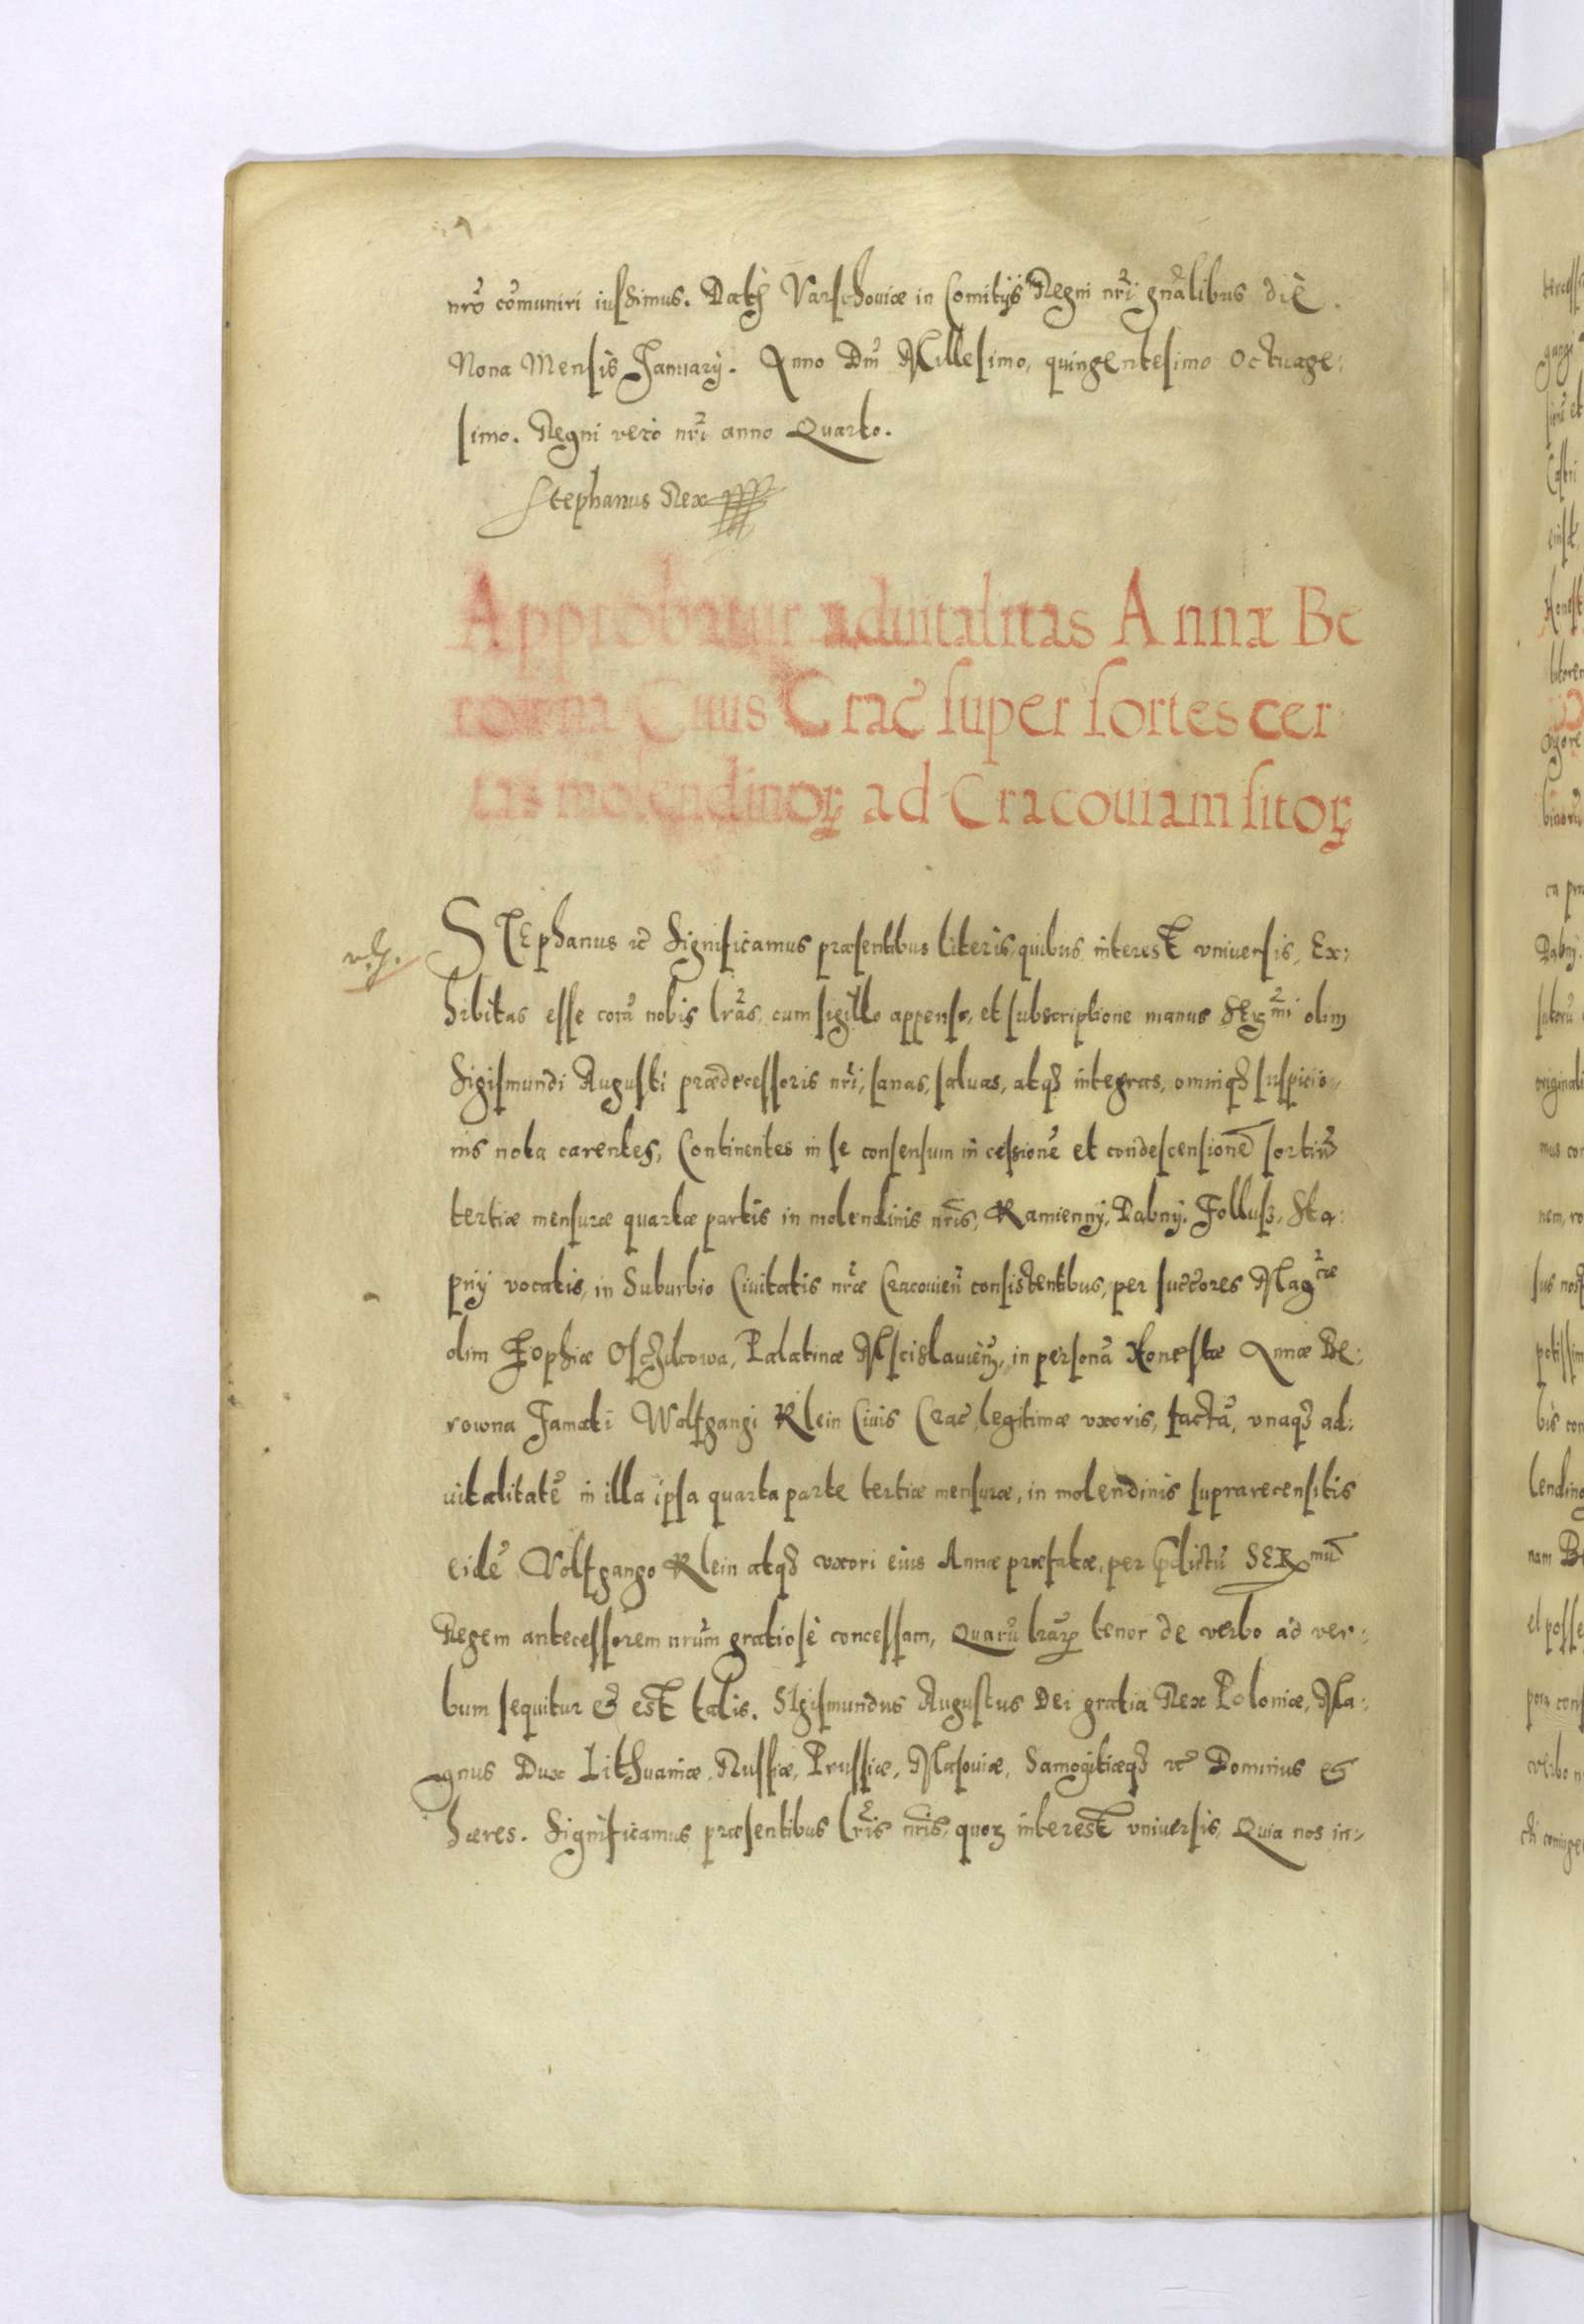 nrō comuniri iussimus. Datū Varschouiæ in Comitijs Regni nri gnalibus die.
Nona Mensis January. Anno Dni Millesimo, quingentesimo Octuage:
simo. Regni vero nri anno Quarto.
Stephanus Rex
Approbatur aduitalitas Annæ Be
rowna Ciuis Crac̃ super sortes cer
tas molendinoꝝ ad Cracouiam sitoꝝ
STEphanus ꝛc̃ Significamus præsentibus literis, quibus interest vniuersis, Ex:
hibitas esse corã nobis lrãs, cum sigillo appenso, et subscriptione manus Serᵐⁱ olim
Sigismundi Augusti prædecessoris nri, sanas, saluas, atqꝫ integras, omniqꝫ suspicio:
nis nota carentes, Continentes in se consensum in cessionẽ et condescensionẽ sortiũ
tertiæ mensuræ quartæ partis in molendinis nris, Kamienny, Dabny, Follusz, Sta:
pny vocatis, in Suburbio Ciuitatis nræ Cracouieñ consistentibus, per succ̃ores Magᶜæ
olim Zophiæ, Palatinæ Mscislauieñ, in personã Honestæ Annæ Be:
rowna Famati Wolfgangi Klein Ciuis Crac̃, legitimæ vxoris, factã, vnaqꝫ ad:
uitalitatẽ in illa ipsa quarta parte tertiæ mensuræ, in molendinis suprarecensitis
eidẽ Wolfgango Klein atqꝫ vxori eius Annæ præfatæ, per p̃dictũ SERᵐũ
Regem antecessorem nrũm gratiosè concessam, Quarũ lrãꝝ tenor de verbo ad ver:
bum sequitur & est talis. SIgismundus Augustus Dei gratia Rex Poloniæ, Ma:
gnus Dux Lithuaniæ, Russiæ, Prussiæ, Masouiæ, Samogitiæqꝫ ꝛc̃ Dominus &
hæres. Significamus præsentibus lris nris, quoꝝ interest vniuersis, Quia nos in: